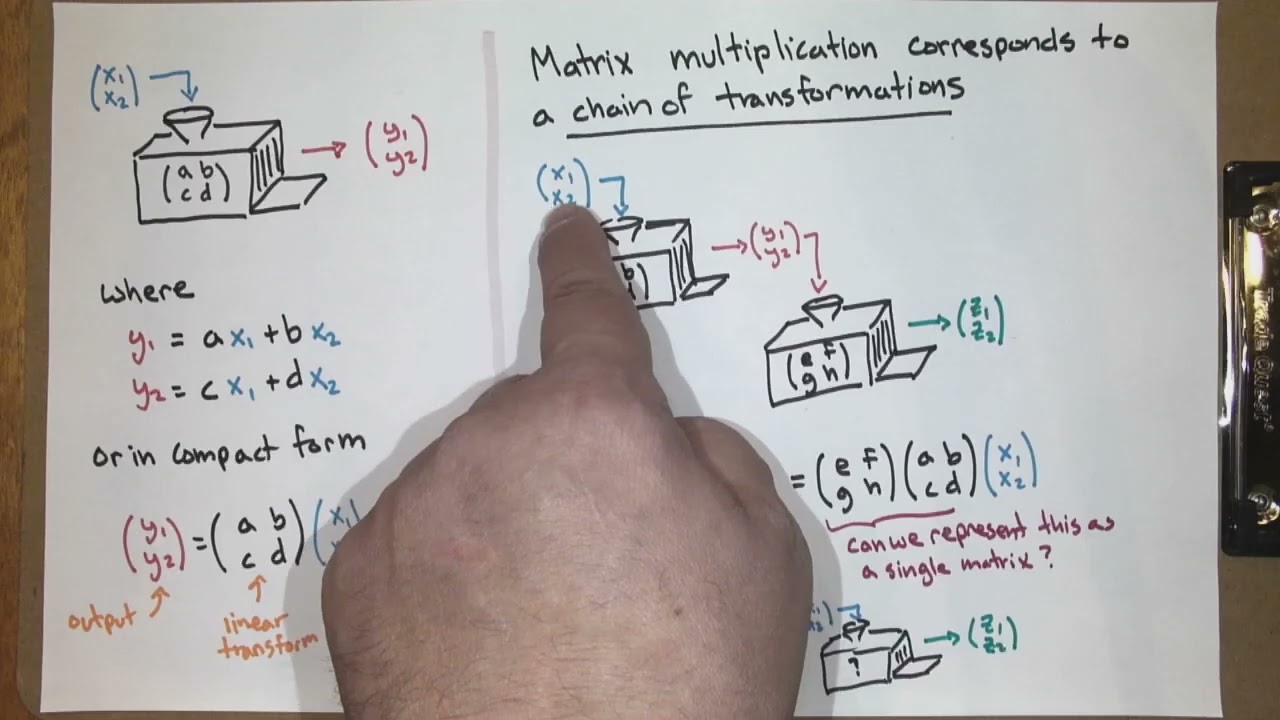 (x₁
x₂)
(a b
c d)
(y₁
y₂)
where
y₁ = a x₁ + b x₂
y₂ = c x₁ + d x₂
or in compact form
(y₁
y₂) = (a b
c d) (x₁
output
linear
transform
Matrix multiplication corresponds to
a chain of transformations
(x₁
x₂)
b
(y₁
y₂)
(e f
g h)
(z₁
z₂)
= (e f
g h) (a b
c d) (x₁
x₂)
can we represent this as
a single matrix?
?
(z₁
z₂)